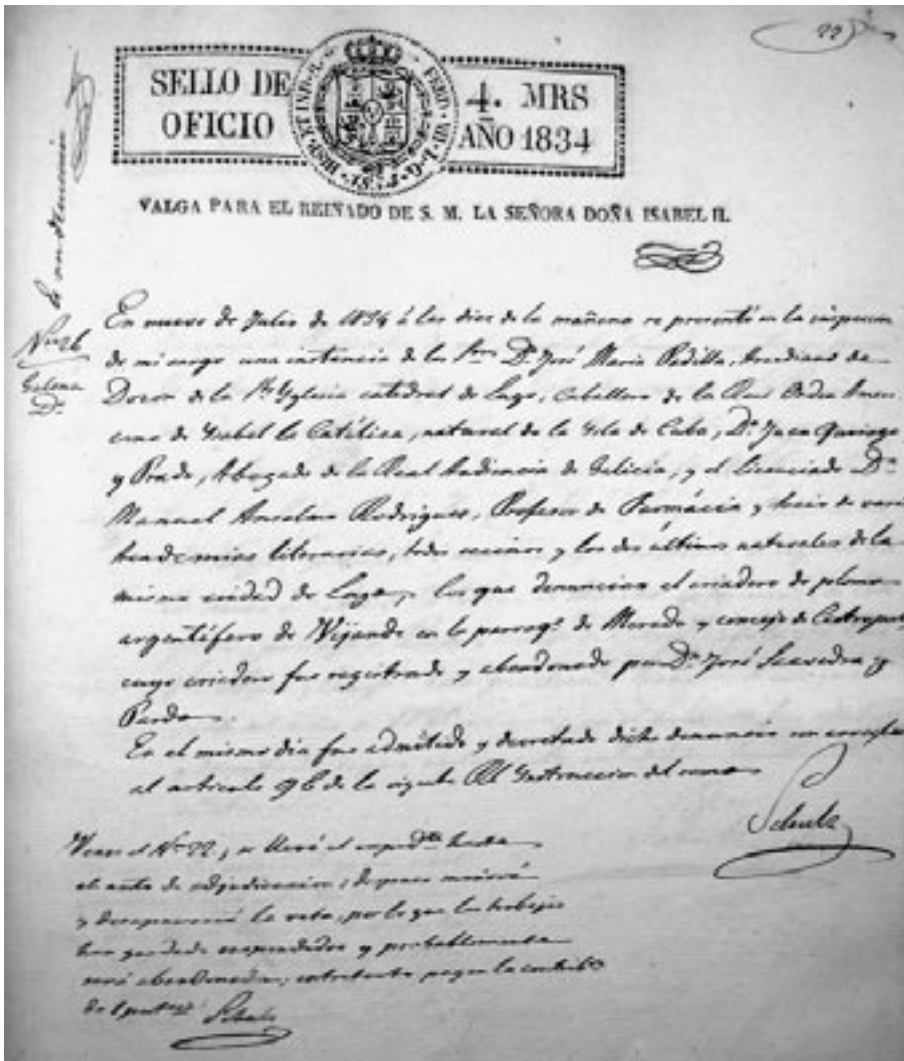 22
SELLO DE OFICIO
4. MRS AÑO 1834
HISP. ET IND. R. FERD. VII. D. G.
VALGA PARA EL REINADO DE S. M. LA SEÑORA DOÑA ISABEL II.
Nº 26
Galena
Dº
En nueve de Julio de 1834 á las diez de la mañana se presentó en la inspeccion
de mi cargo una instancia de los Sres Dn José Maria Padilla, Arcediano de
Dozon de la Sta Yglesia catedral de Lugo, Caballero de la Real Orden Ameri-
cana de Ysabel la Católica, natural de la Ysla de Cuba, Dn Juan
y Prado, Abogado de la Real Audiencia de Galicia, y el licenciado Dn
Manuel Anselmo Rodriguez, Profesor de Farmácia y Socio de varias
Academias literarias, todos vecinos y los dos últimos naturales de la
misma ciudad de Lugo, los que denuncian el criadero de plomo
argentífero de Vijande en la parroqa de Meredo y concejo de Castropol,
cuyo criadero fue registrado y abandonado por Dn José Saavedra y
Pardo.
En el mismo dia fue admitido y decretado dicho denuncio con arreglo
al articulo 96 de la Rl Instruccion del ramo
Schulz
Vease el Nº 22; se llevó el expedte hasta
el auto de adjudicacion; despues
y desapareció la veta, por lo que los trabajos
han quedado suspendidos y probablemente
será abandonada; entretanto pagan la contribn
de 1 perta
Schulz